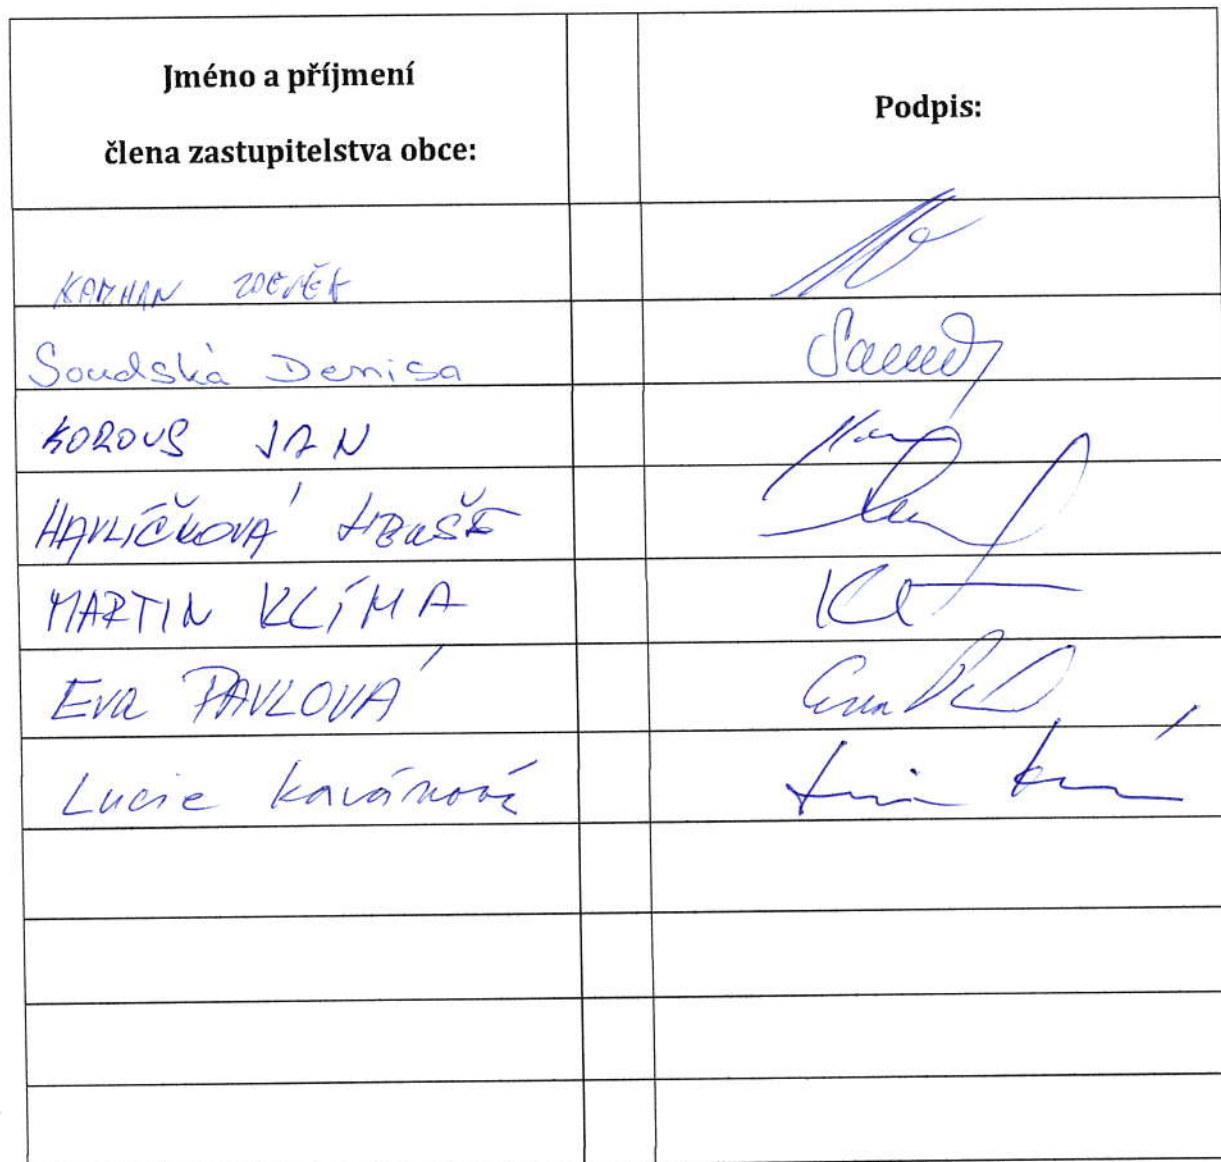 Jméno a příjmení
člena zastupitelstva obce:
Podpis:
ZDENĚK
Soudská Denisa
KOROUS JAN
HAVLÍČKOVÁ LIBUŠE
MARTIN KLÍMA
Eva PAVLOVÁ
Lucie Kavánová